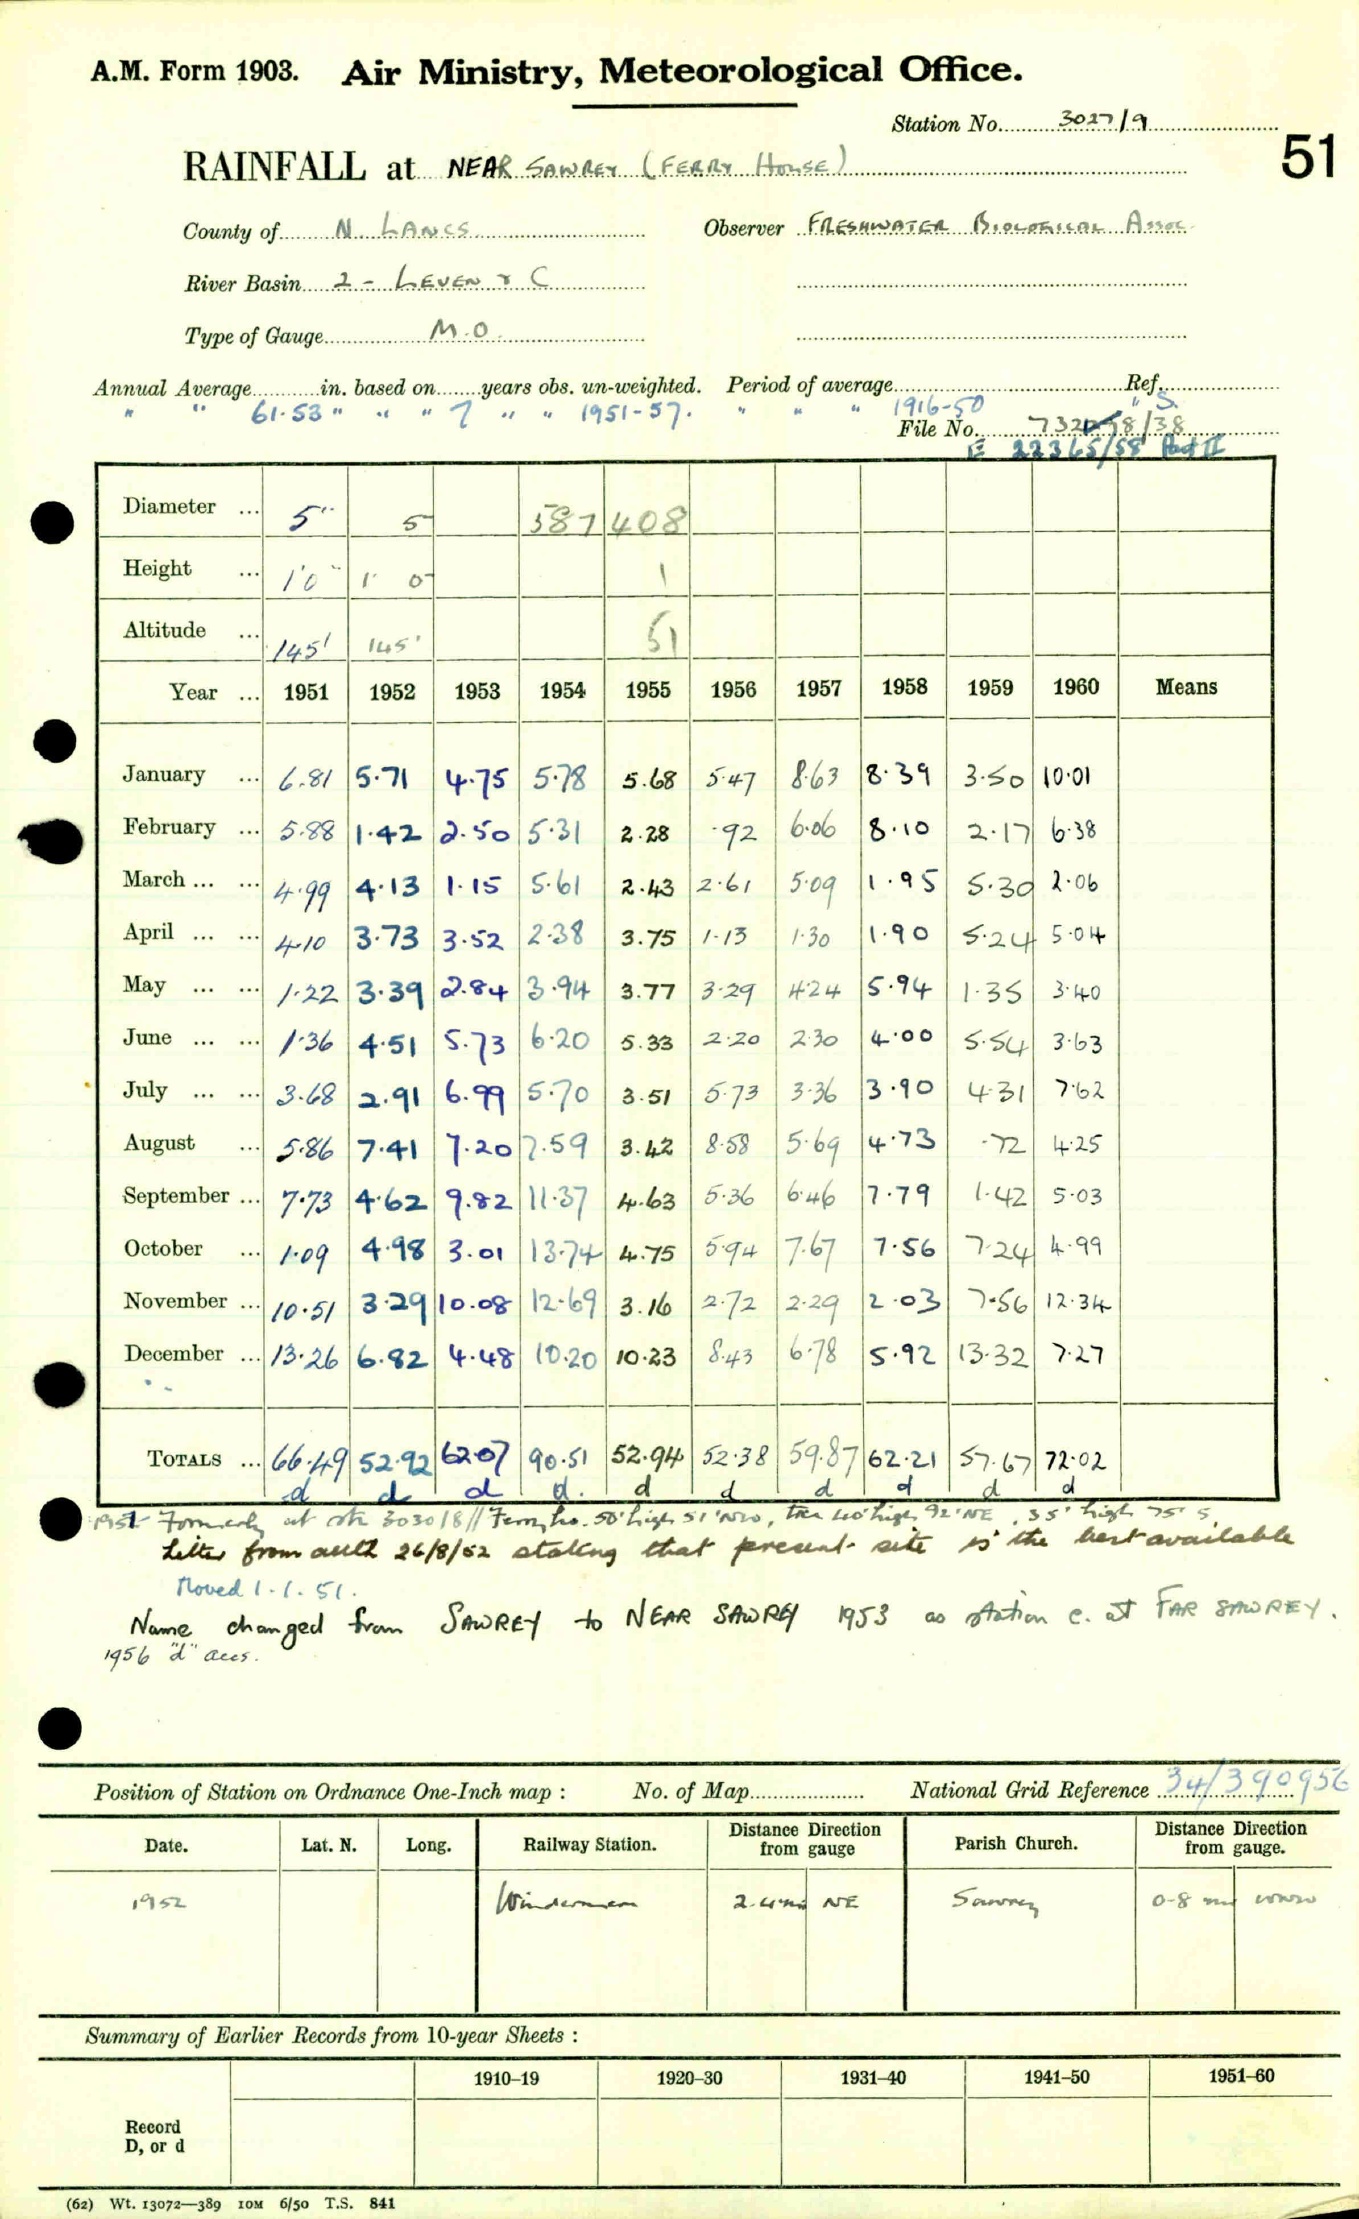 A.M. Form 1903. Air Ministry, Meteorological Office.
Station No. 3027/9
51
RAINFALL at NEAR SAWREY (FERRY HOUSE)
County of N. LANCS. Observer FRESHWATER BIOLOGICAL ASSOC.
River Basin 2 - LEVEN & C
Type of Gauge M.O.
Annual Average in. based on years obs. un-weighted. Period of average Ref.
" " 61.53 " " " 7 " " 1951-57. " " " 1916-50 " S.
File No. /38
E 22365/58 Part II
Diameter ... 5" 5 587 408
Height ... 1'0" 1' 0" 1
Altitude ... 145' 145' 51
Year ... 1951 1952 1953 1954 1955 1956 1957 1958 1959 1960 Means
January ... 6.81 5.71 4.75 5.78 5.68 5.47 8.63 8.39 3.50 10.01
February ... 5.88 1.42 2.50 5.31 2.28 .92 6.06 8.10 2.17 6.38
March ... ... 4.99 4.13 1.15 5.61 2.43 2.61 5.09 1.95 5.30 2.06
April ... ... 4.10 3.73 3.52 2.38 3.75 1.13 1.30 1.90 5.24 5.04
May ... ... 1.22 3.39 2.84 3.94 3.77 3.29 4.24 5.94 1.35 3.40
June ... ... 1.36 4.51 5.73 6.20 5.33 2.20 2.30 4.00 5.54 3.63
July ... ... 3.68 2.91 6.99 5.70 3.51 5.73 3.36 3.90 4.31 7.62
August ... 5.86 7.41 7.20 7.59 3.42 8.58 5.69 4.73 .72 4.25
September ... 7.73 4.62 9.82 11.37 4.63 5.36 6.46 7.79 1.42 5.03
October ... 1.09 4.98 3.01 13.74 4.75 5.94 7.67 7.56 7.24 4.99
November ... 10.51 3.29 10.08 12.69 3.16 2.72 2.29 2.03 7.56 12.34
December ... 13.26 6.82 4.48 10.20 10.23 8.43 6.78 5.92 13.32 7.27
TOTALS ... 66.49 52.92 62.07 90.51 52.94 52.38 59.87 62.21 57.67 72.02
d d d d. d d d d d d
Formerly at stn 3030/8 // Ferry ho. 50' high 51' NW, tree 40' high 92' NE, 35' high 75' S.
Letter from auth 26/8/52 stating that present site is the best available
Moved 1.1.51.
Name changed from SAWREY to NEAR SAWREY 1953 as station c. at FAR SAWREY.
1956 "d" accs.
Position of Station on Ordnance One-Inch map : No. of Map National Grid Reference 34/390956
Date. Lat. N. Long. Railway Station. Distance Direction from gauge Parish Church. Distance Direction from gauge.
1952 Windermere 2.4 mi NE Sawrey 0.8 mi WNW
Summary of Earlier Records from 10-year Sheets :
1910–19 1920–30 1931–40 1941–50 1951–60
Record
D, or d
(62) Wt. 13072—389 10M 6/50 T.S. 841